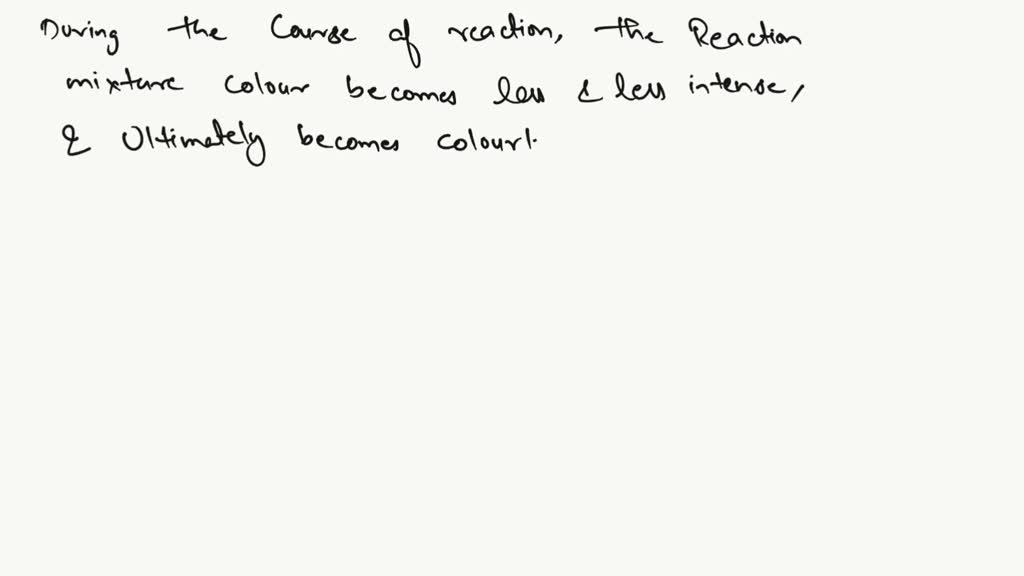 During the Course of reaction, the Reaction
mixture colour becomes less & less intense,
& Ultimately becomes colourl